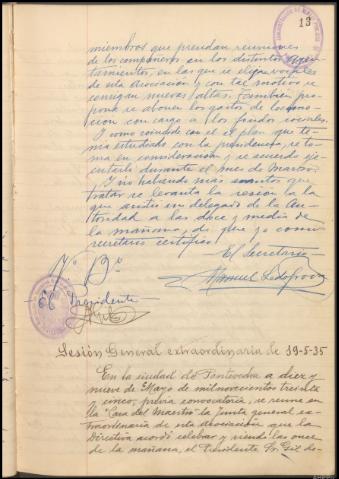 13
miembros que presidan reuniones
de los compañeros en los distintos Ayun-
tamientos, en las que se elijan vocales
de esta Asociación y con tal motivo se
consigan nuevas altas. También pro-
pone se abonen los gastos de locomo-
cion con cargo a los fondos sociales.
Y como coincide con el el plan que te-
nía estudiado con la presidencia, se to-
ma en consideración y se acuerda eje-
cutarlo durante el mes de Marzo.
Y no habiendo mas asuntos que
tratar se levanta la sesión a la
que asistió un delegado de la Au-
toridad a las doce y media de
la mañana, de que yo como
secretario certifico.
El Secretario
Vº Bº
El Presidente
Manuel
Sesión General extraordinaria de 19-5-35
En la ciudad de Pontevedra a diez y
nueve de Mayo de mil novecientos treinta
cinco, previa convocatoria, se reune en
la "Casa del Maestro" la Junta general ex-
traordinaria de esta Asociación que la
Directiva acordó celebrar y siendo las once
de la mañana, el Presidente Sr. Gil de-